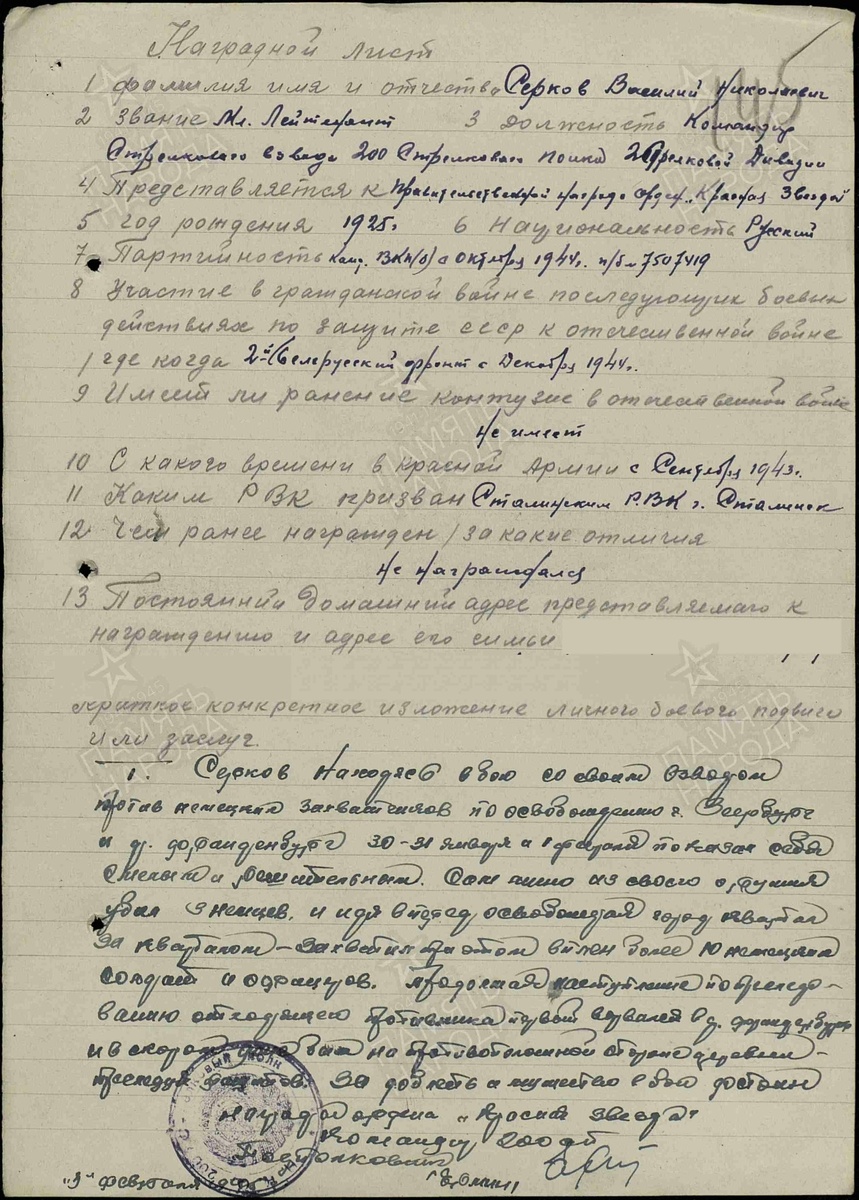 Наградной лист
145
1 фамилия имя и отчества Серков Василий Николаевич
2 Звание Мл. Лейтенант 3 должность Командир
Стрелкового взвода 200 Стрелкового полка 2 Стрелковой Дивизии
4 Представляется к правительственной награде орден „Красная Звезда"
5 год рождения 1925г. 6 Национальность Русский
7 Партийность канд. ВКП(б) с октября 1944г. п/б № 7507419
8 Участие в гражданской войне последующих боевых
действиях по защите СССР к отечественной войне
/где когда 2й Белорусский фронт с Декабря 1944г.
9 Имеет ли ранение контузие в отечественной войне
Не имеет
10 С какого времени в красной Армии с Сентября 1943г.
11 Каким РВК призван Сталинским Р.ВК г. Сталинск
12 Чем ранее награжден /за какие отличия
Не награждался
13 Постоянний домашний адрес представляемаго к
награждению и адрес его симьи
краткое конкретное изложение личного боевого подвига
или заслуг.
1. Серков Находясь в бою со своим взводом
против немецких захватчиков по освобождению г.
и д. 30-31 января и 1 февраля показал себя
смелым и решительным. Сам лично из своего оружия
убил 3 немцев, и идя вперед освобождая город квартал
за кварталом - захватил при этом в плен более 10 немецких
солдат и офицеров. Продолжая наступление по преследо-
ванию отходящего противника первый ворвался в д.
и в скором был на противоположной стороне деревни -
преследуя фашистов. За доблесть и мужество в бою достоин
награды ордена „Красная звезда"
Командир 200 сп
Подполковник
„3" февраля 1945